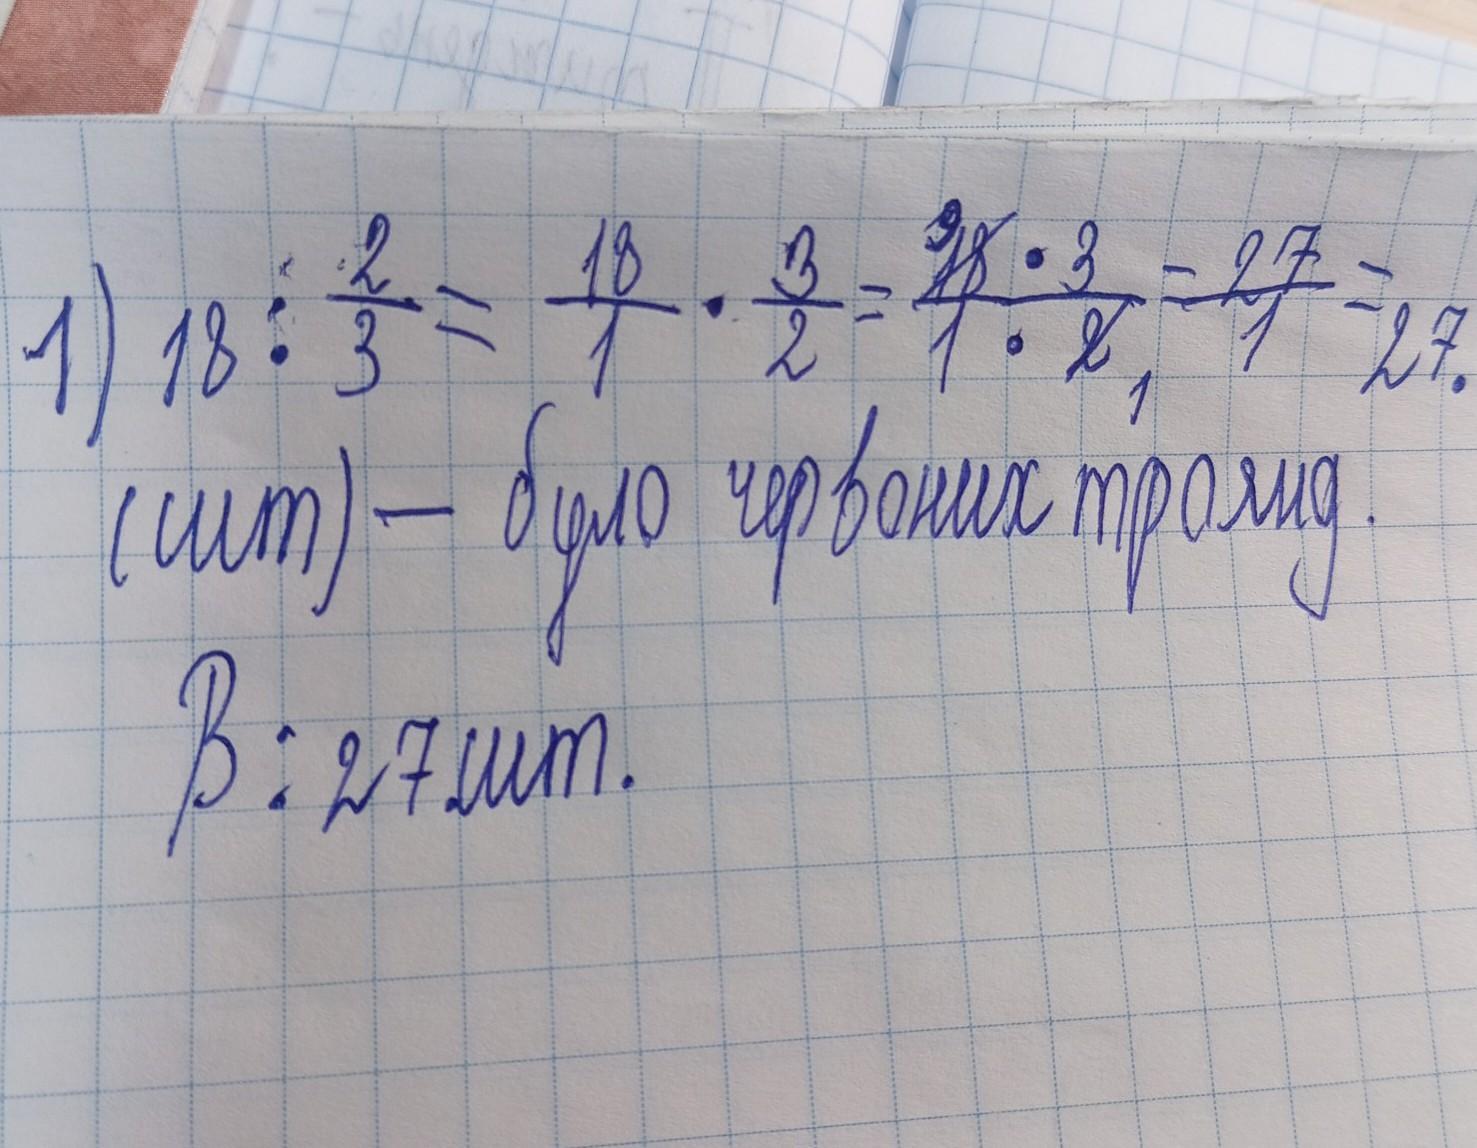 1) 18 : 2/3 = 18/1 · 3/2 = 18 9 · 3 / 1 · 2 1 = 27/1 = 27.
(шт) — було червоних троянд.
В : 27 шт.